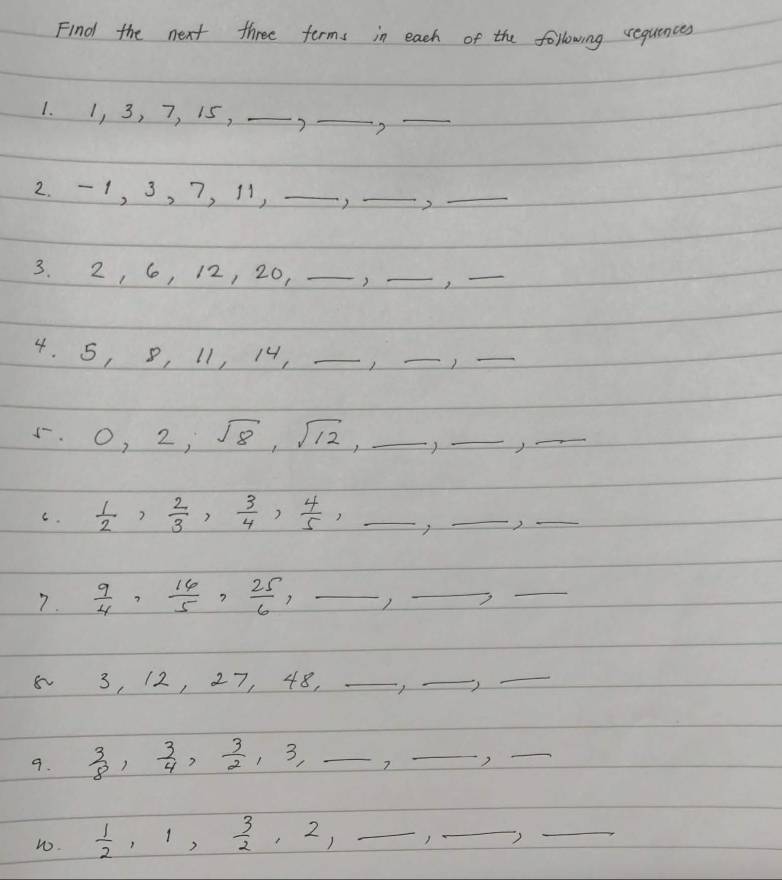 Find the next three terms in each of the following sequences
1. 1, 3, 7, 15, __, __, __
2. -1, 3, 7, 11, __, __, __
3. 2, 6, 12, 20, __, __, __
4. 5, 8, 11, 14, __, __, __
5. 0, 2, √8, √12, __, __, __
6. 1/2, 2/3, 3/4, 4/5, __, __, __
7. 9/4, 16/5, 25/6, __, __, __
8. 3, 12, 27, 48, __, __, __
9. 3/8, 3/4, 3/2, 3, __, __, __
10. 1/2, 1, 3/2, 2, __, __, __